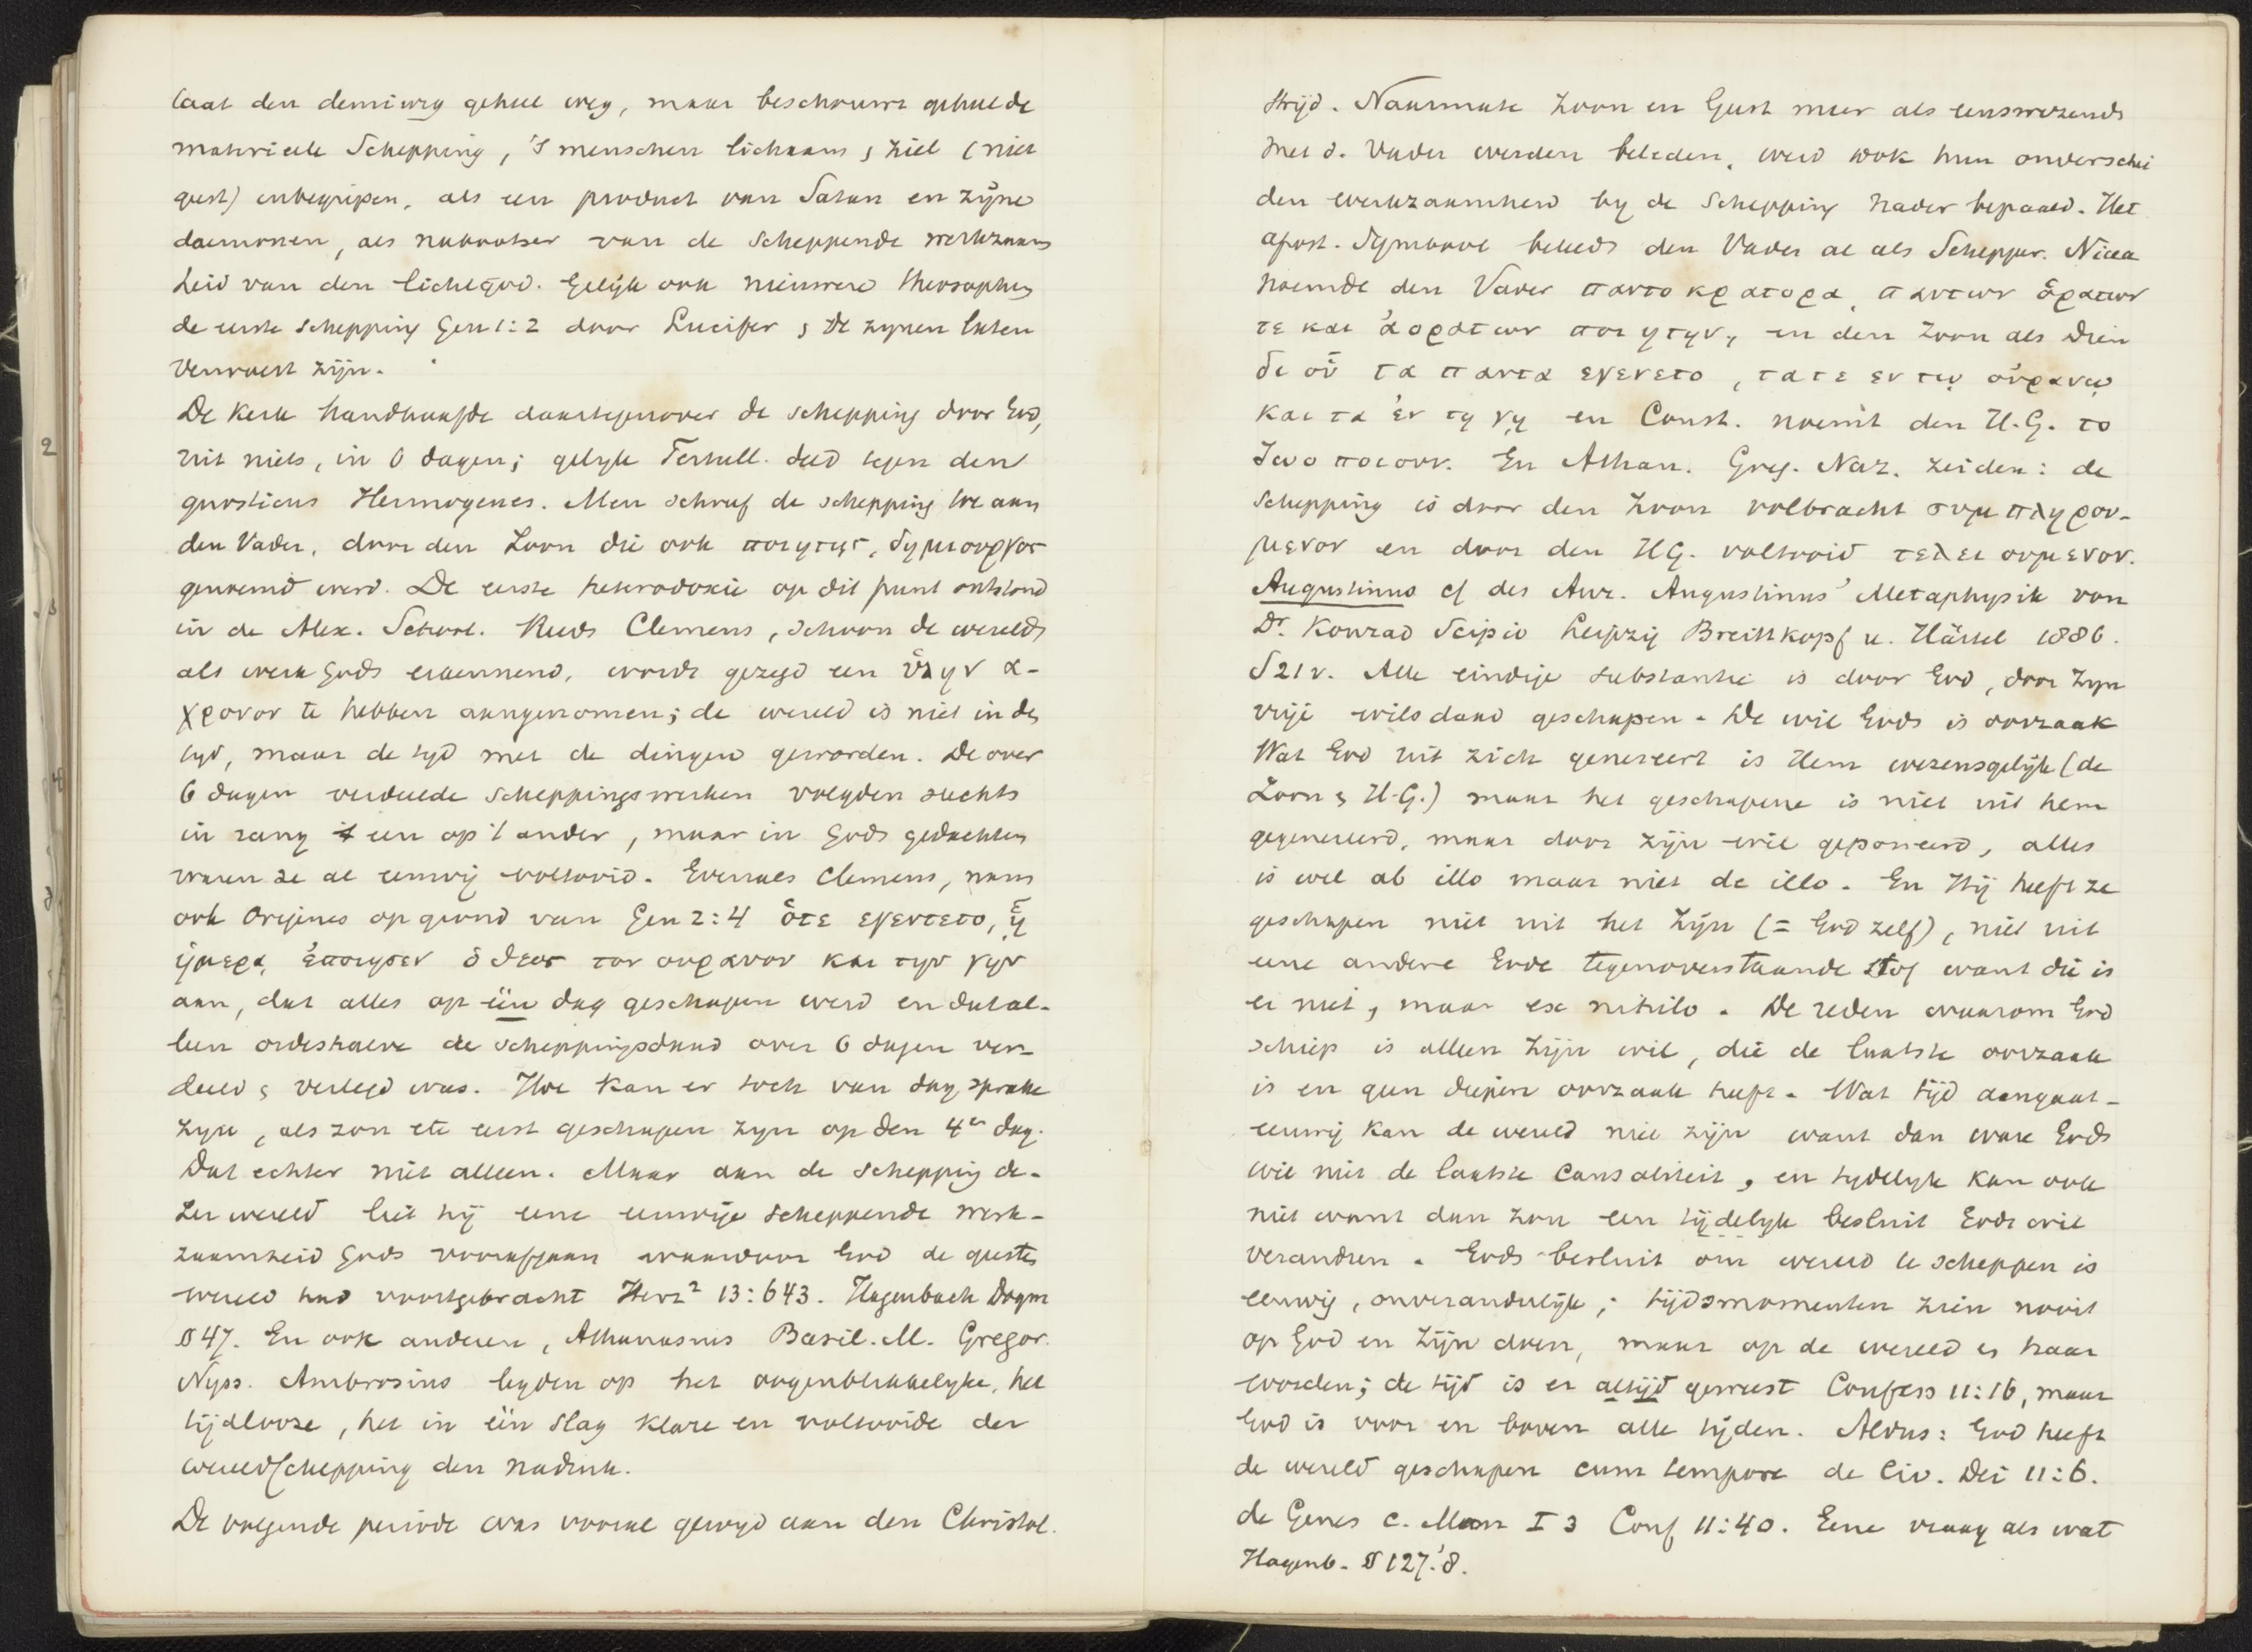 laat den demiurg geheel weg, maar beschouwt geheel de
materieele Schepping, 's menschen lichaam & ziel (niet
geest) inbegrepen, als een product van Satan en zijne
daemonen, als nabootser van de Scheppende werkzaam
heid van den lichtgod. Gelijk ook nieuwere theosophen
de eerste schepping Gen 1:2 door Lucifer & de zynen laten
verwoest zijn.
De Kerk handhaafde daartegenover de schepping door God,
uit niets, in 6 dagen; gelyk Tertull. deed tegen den
gnosticus Hermogenes. Men schreef de schepping toe aan
den Vader, door den Zoon die ook ποιητης, δημιουργος
genoemd werd. De eerste heterodoxie op dit punt ontstond
in de Alex. School. Reeds Clemens, schoon de wereld
als werk Gods erkennend, wordt gezegd een ὕλην α-
χρονον te hebben aangenomen; de wereld is niet in de
tyd, maar de tyd met de dingen geworden. De over
6 dagen verdeelde scheppingswerken volgden slechts
in rang 't een op 't ander, maar in Gods gedachten
waren ze al eeuwig voltooid. Evenals Clemens, nam
ook Origines op grond van Gen 2:4 ὅτε εγεντετο, ᾗ
ἡμερα, ἐποιησεν ὁ θεος τον ουρανον και την γην
aan, dat alles op één dag geschapen werd en dat al-
leen ordeshalve de scheppingsdaad over 6 dagen ver-
deeld & verlegd was. Hoe kan er toch van dag sprake
zyn, als zon etc eerst geschapen zyn op den 4en dag.
Dat echter niet alleen. Maar aan de schepping de-
zer wereld liet hij eene eeuwige scheppende werk-
zaamheid Gods voorafgaan waardoor God de geesten
wereld had voortgebracht Herz² 13:643. Hagenbach Dogm
§ 47. En ook anderen, Athanasius Basil. M. Gregor.
Nyss. Ambrosius legden op het oogenblikkelyke, het
tijdlooze, het in één slag klare en voltooide der
wereldschepping den nadruk.
De volgende periode was vooral gewijd aan den Christol.
strijd. Naarmate Zoon en Geest meer als eenswezends
met d. Vader werden beleden, werd ook hun onderschei
den werkzaamheid by de Schepping nader bepaald. Het
apost. Symbool beleed den Vader al als Schepper. Nicea
noemde den Vader παντοκρατορα, παντων ὁρατων
τε και ἀορατων ποιητην, en den Zoon als Dien
δι οὗ τα παντα εγενετο, τα τε εν τῳ οὐρανῳ
και τα ἐν τῃ γῃ en Const. noemt den H.G. το
ζωοποιουν. En Athan. Greg. Naz. zeiden: de
schepping is door den Zoon volbracht συμπληρου-
μενον en door den HG. voltooid τελειουμενον.
Augustinus cf des Aur. Augustinus' Metaphysik von
Dr. Konrad Scipio Leipzig Breitkopf u. Härtel 1886.
S 21 v. Alle eindige substantie is door God, door zyn
vrije wilsdaad geschapen. De wil Gods is oorzaak
Wat God uit zich genereert is Hem wezensgelijk (de
Zoon & H.G.) maar het geschapene is niet uit hem
gegenereerd, maar door zijn wil geponeerd, alles
is wel ab illo maar niet de illo. En Hij heeft ze
geschapen niet uit het Zijn (= God zelf), niet uit
eene andere Gode tegenoverstaande stof want die is
er niet, maar ex nihilo. De reden waarom God
schiep is alleen zijn wil, die de laatste oorzaak
is en geen diepere oorzaak heeft. Wat tijd aangaat –
eeuwig kan de wereld niet zijn want dan ware Gods
wil niet de laatste causaliteit, en tydelyk kan ook
niet want dan zou een tijdelyk besluit Gods wil
verandren. Gods besluit om wereld te scheppen is
eeuwig, onveranderlijk; tijdsmomenten zien nooit
op God en zijn doen, maar op de wereld en haar
worden; de tijd is er altijd geweest Confess 11:16, maar
God is voor en boven alle tijden. Aldus: God heeft
de wereld geschapen cum tempore de Civ. Dei 11:6.
de Genes c. Man I 3 Conf 11:40. Eene vraag als wat
Hagenb. § 127.'8.